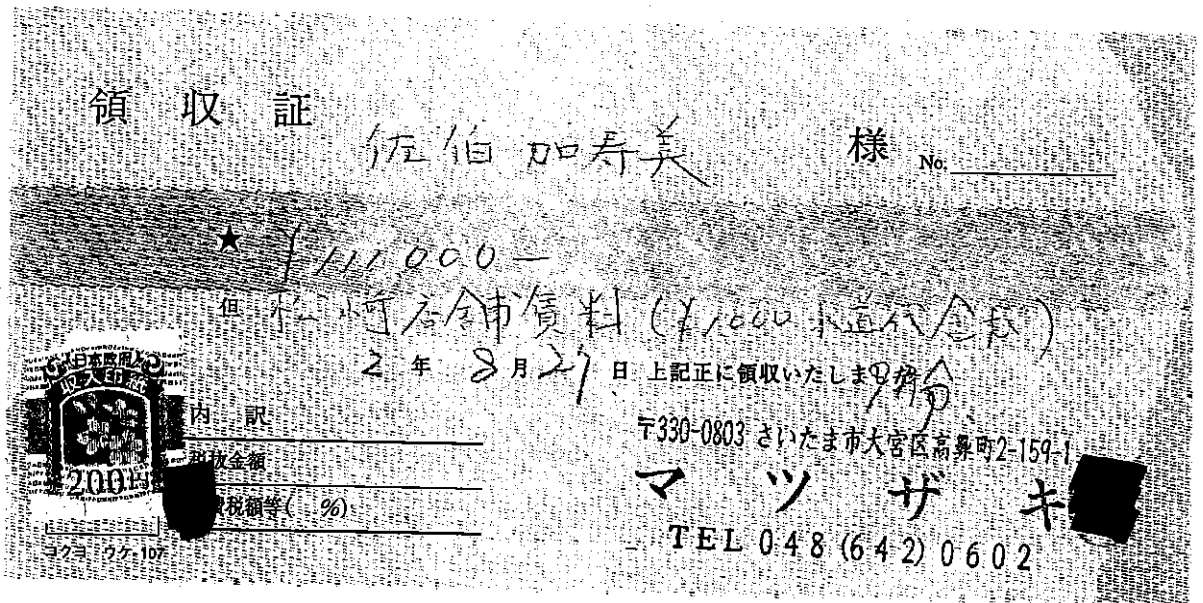 領収証
佐伯 加寿美 様 No.
★ ¥111,000—
但 店舗賃料(¥1,000 水道代含む)
2年 8月27日 上記正に領収いたしま 9月分
日本政府
収入印紙
200円
内訳
税抜金額
費税額等( %)
コクヨ ウケ-107
〒330-0803 さいたま市大宮区高鼻町2-159-1
マツザキ
TEL 048(642)0602